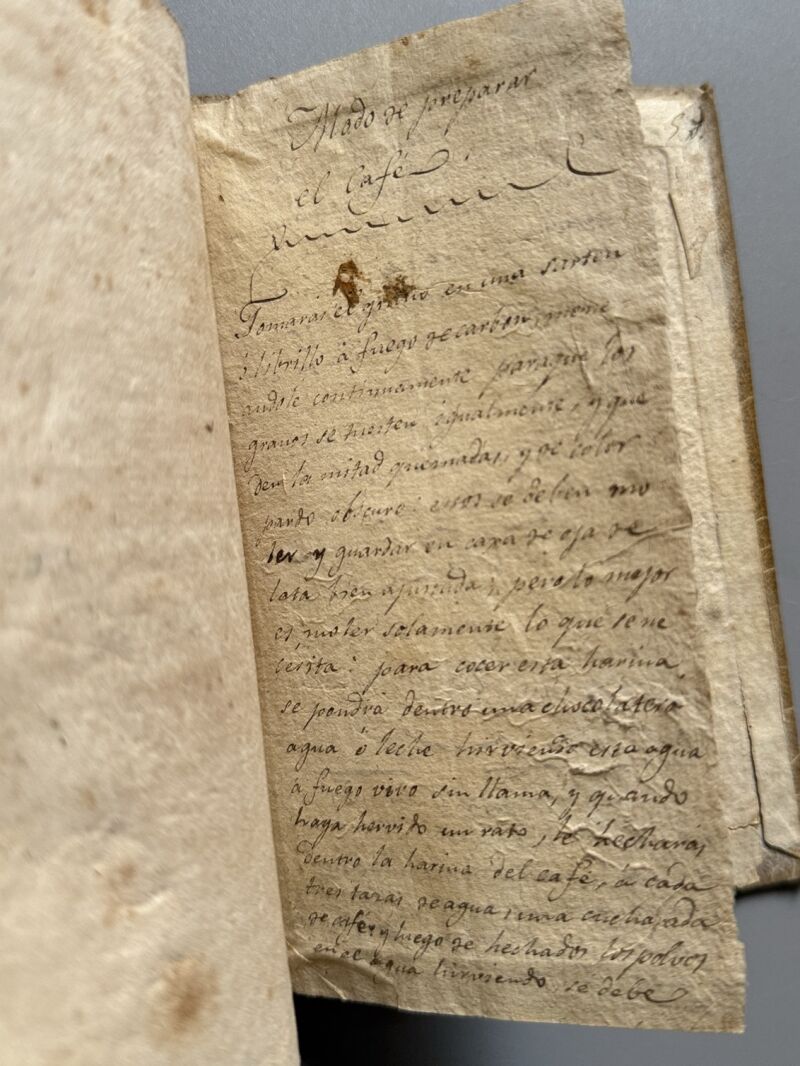 Modo de preparar
el Café.
Tomarás el grano en una sarten
ó librillo á fuego de carbon, mene
andole continuamente paraque los
granos se tuesten igualmente, y que
den la mitad quemadas, y de color
pardo obscuro: estos se deben mo
ler y guardar en caxa de oja de
lata bien ajustada; pero lo mejor
es, moler solamente lo que se ne
cesita: para cocer esta harina
se pondrá dentro una chocolatera
agua ó leche hirviendo esta agua
á fuego vivo sin llama, y quando
haya hervido un rato, le hecharás
dentro la harina del café, á cada
tres tazas de agua, una cucharada
de café, y luego de hechados los polvos
en el agua hirviendo, se debe